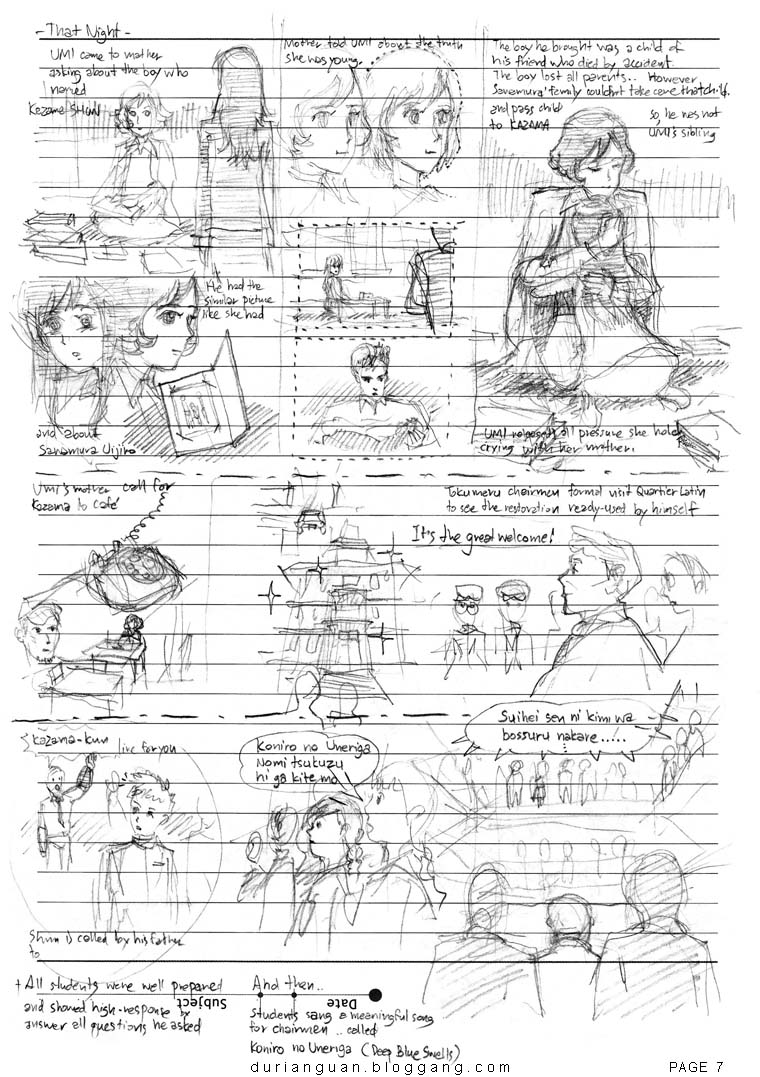 - That Night -
UMI came to mother
asking about the boy who
named
Kazama SHUN
Mother told UMI about the truth
she was young.
The boy he brought was a child of
his friend who died by accident.
The boy lost all parents.. However
Sawamura' family couldn't take care that child.
and pass child
to KAZAMA
so, he was not
UMI's sibling
He had the
similar picture
like she had
and about
UMI released all pressure she hold
crying with her mother.
UMI's mother call for
Kazama to café
Tokumaru chairmen formal visit Quartier Latin
to see the restoration ready-used by himself
It's the great welcome!
Kazama-kun
live for you
Koniro no Uneriga
Nomi tsukuzu
hi ga kite mo
Suihei sen ni kimi wa
bossuru nakare.....
Shun is called by his father
to
+ All students were well prepared
and showed high-response by
answer all questions he asked
Subject
And then..
Date
students sang a meaningful song
for chairmen .. called
Koniro no Uneriga (Deep Blue Swells)
durianguan.bloggang.com
PAGE 7